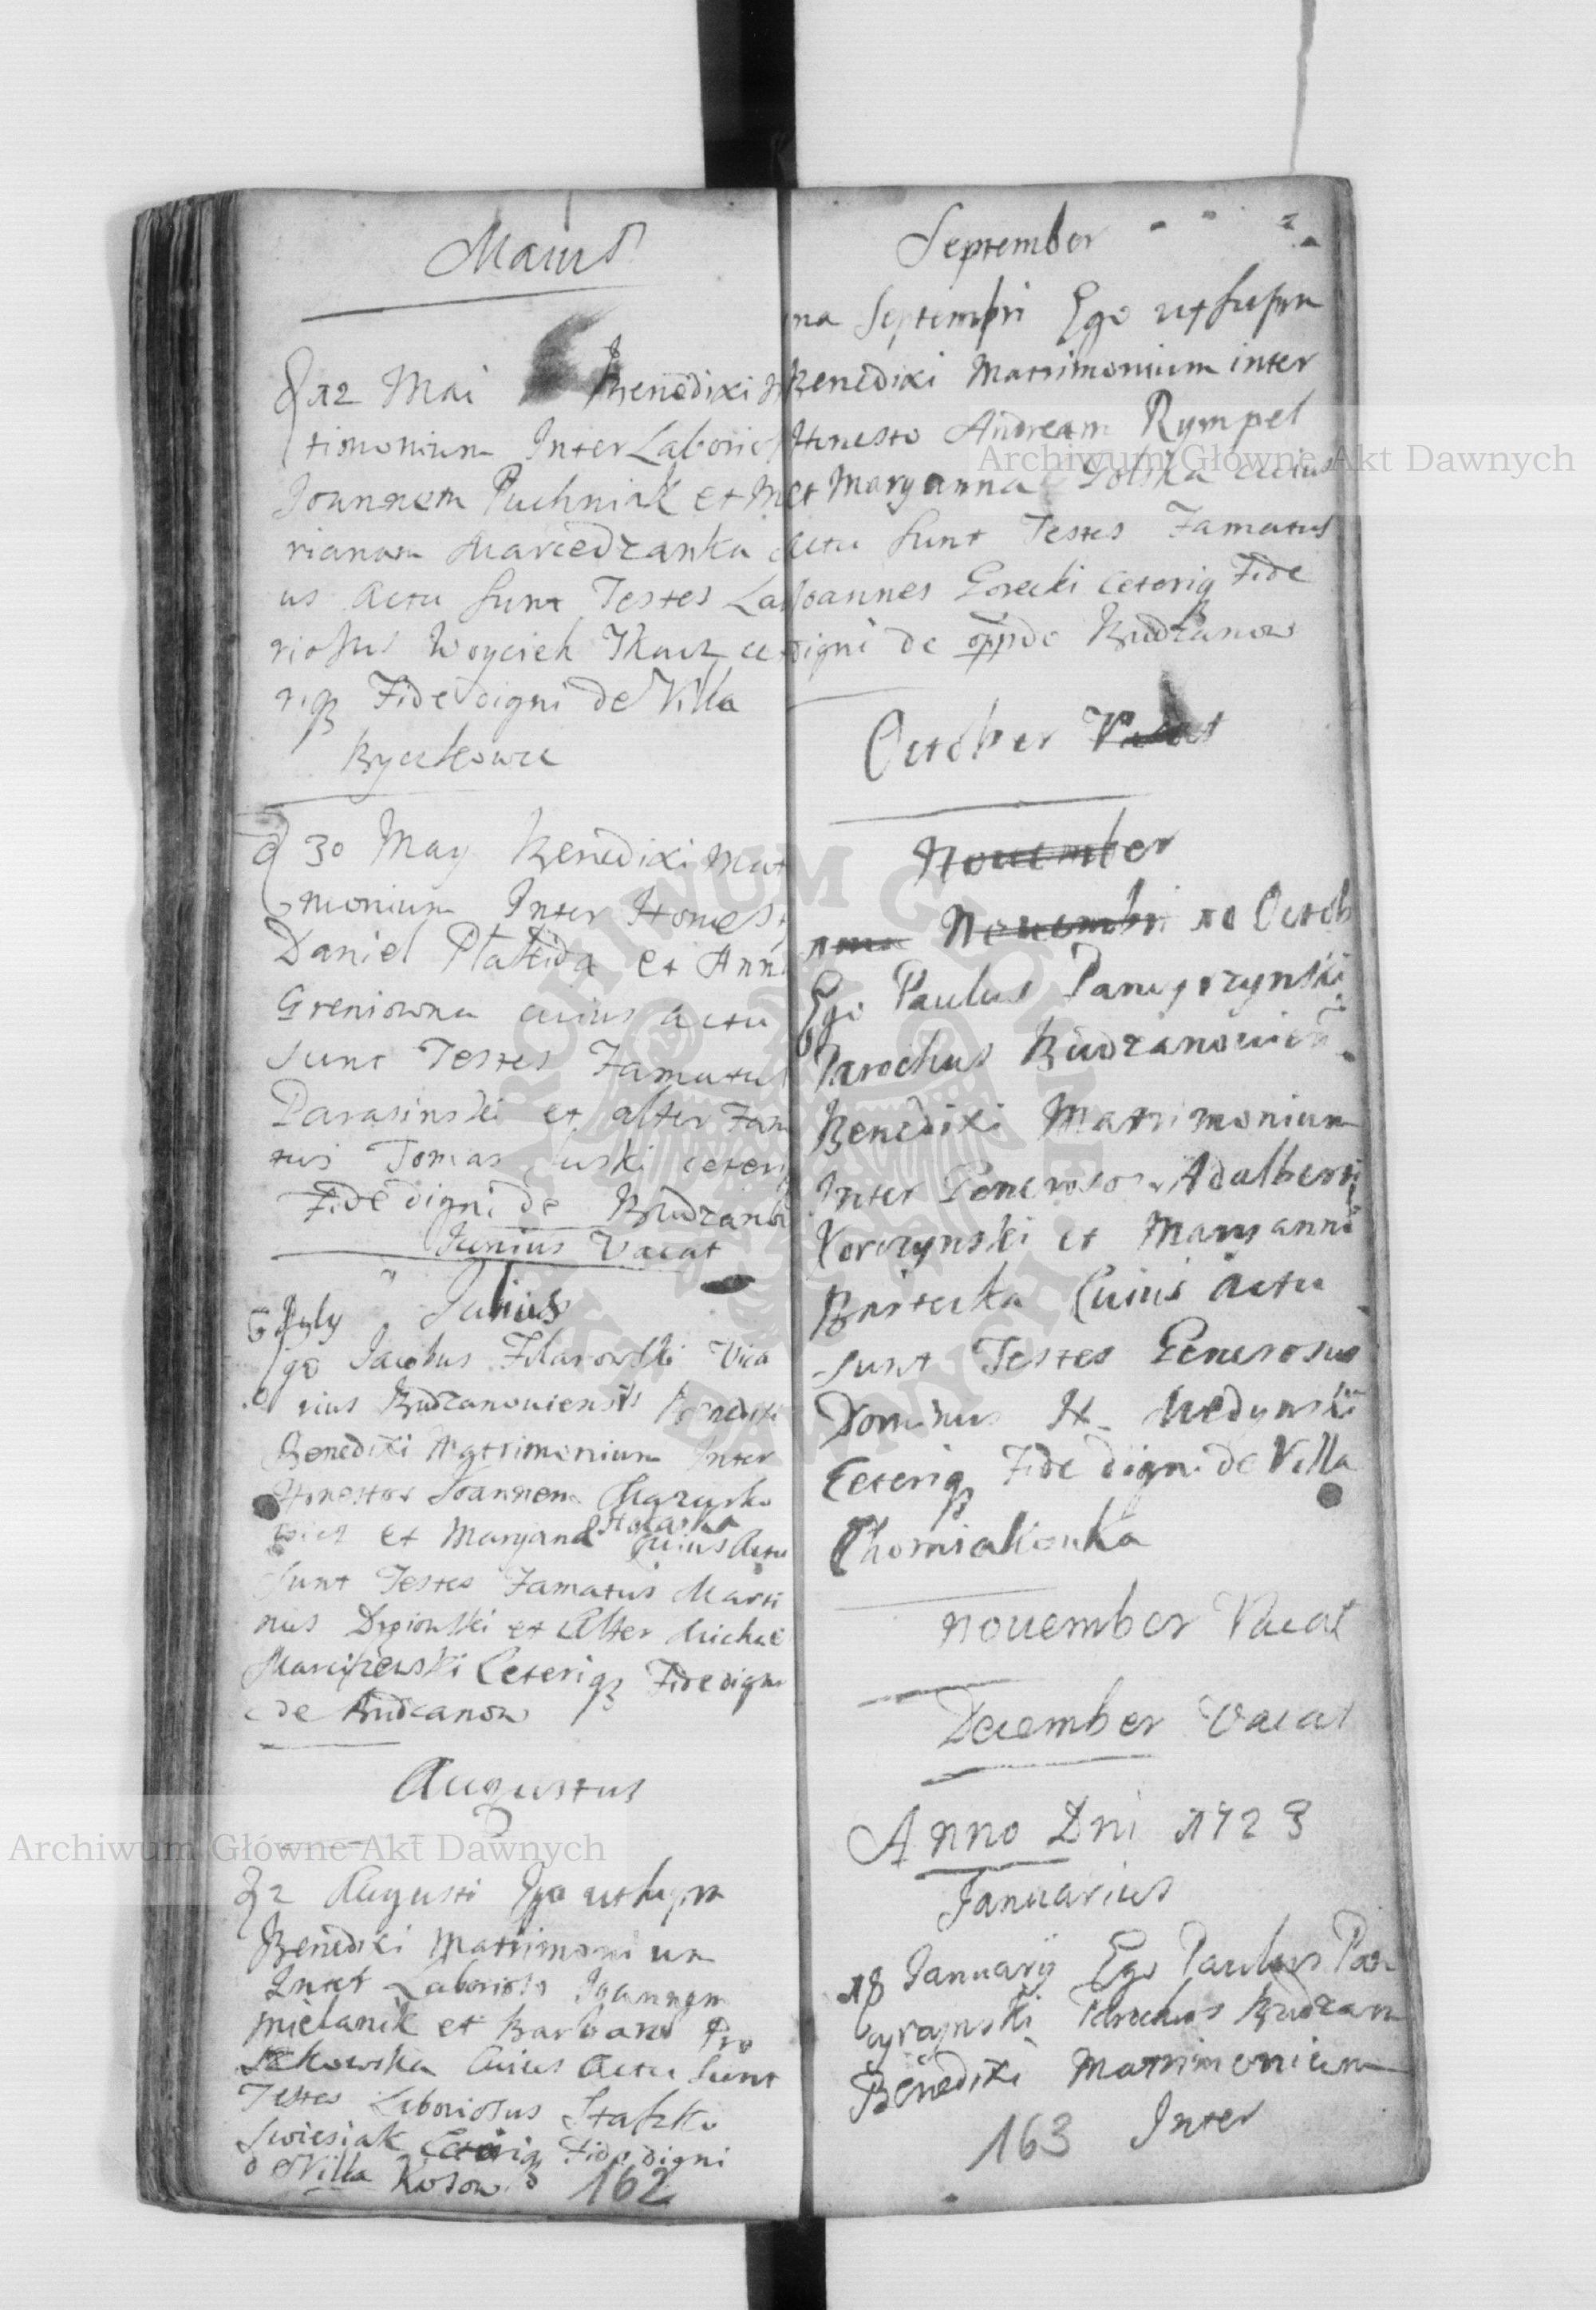 Maius
12 Mai Benedixi
timonium Inter Laborios
Joannem Puchniak et M
rianam Marcedzanka
us actu sunt Testes Lab
riosus Woyciech Tkacz ce
riq Fide digni de Villa
Byczkowce
30 May Benedixi Mat
monium Inter Honest
Daniel et Ann
Greniowna cuius actu
sunt Testes Famatus
Parasinski et alter Fam
tus Tomas Luski ceteri
Fide digni de Budzano
Junius Vacat
Julius
6 July
go Jacobus Filarowski Vica
rius Budzanouiensis Benedixi
Benedixi Matrimonium Inter
Honestos Joannem Mazurko
wicz et Maryana cuius Actu
sunt Testes Famatus Marti
nus et Alter Michael
Ceteriq Fide digni
de Budzanow
Augustus
2 Augusti Ego ut supra
Benedixi Matrimonium
Inter Laborioso Joannem
Mielanik et Barbara
cuius Actu sunt
Testes Laboriosus Staszko
Swiesiak Ceteriq Fide digni
de Villa Kosow
162
September
ma Septembri Ego ut supra
Benedixi Matrimonium inter
Honesto Andream Rympel
et Maryanna Golska cuius
actu sunt Testes Famatus
Joannes Gorecki ceteriq Fide
digni de oppdo Budzanow
October Vacat
Nouember
Nouembri 10 Octob
Ego Paulus
Parochus Budzanouien
Benedixi Matrimonium
Inter Generosos Adalbert
Korczynski et Maryanna
Bartecka Cuius actu
sunt Testes Generosus
Dominus H Medynski
Ceteriq Fide digni de Villa
Chomiakowka
Nouember Vacat
December Vacat
Anno Dni 1723
Januarius
18 Januarij Ego Paulus Pan
Parochus Budzan
Benedixi Matrimonium
Inter
163
Archiwum Główne Akt Dawnych
Archiwum Główne Akt Dawnych
ARCHIWUM GŁÓWNE AKT DAWNYCH